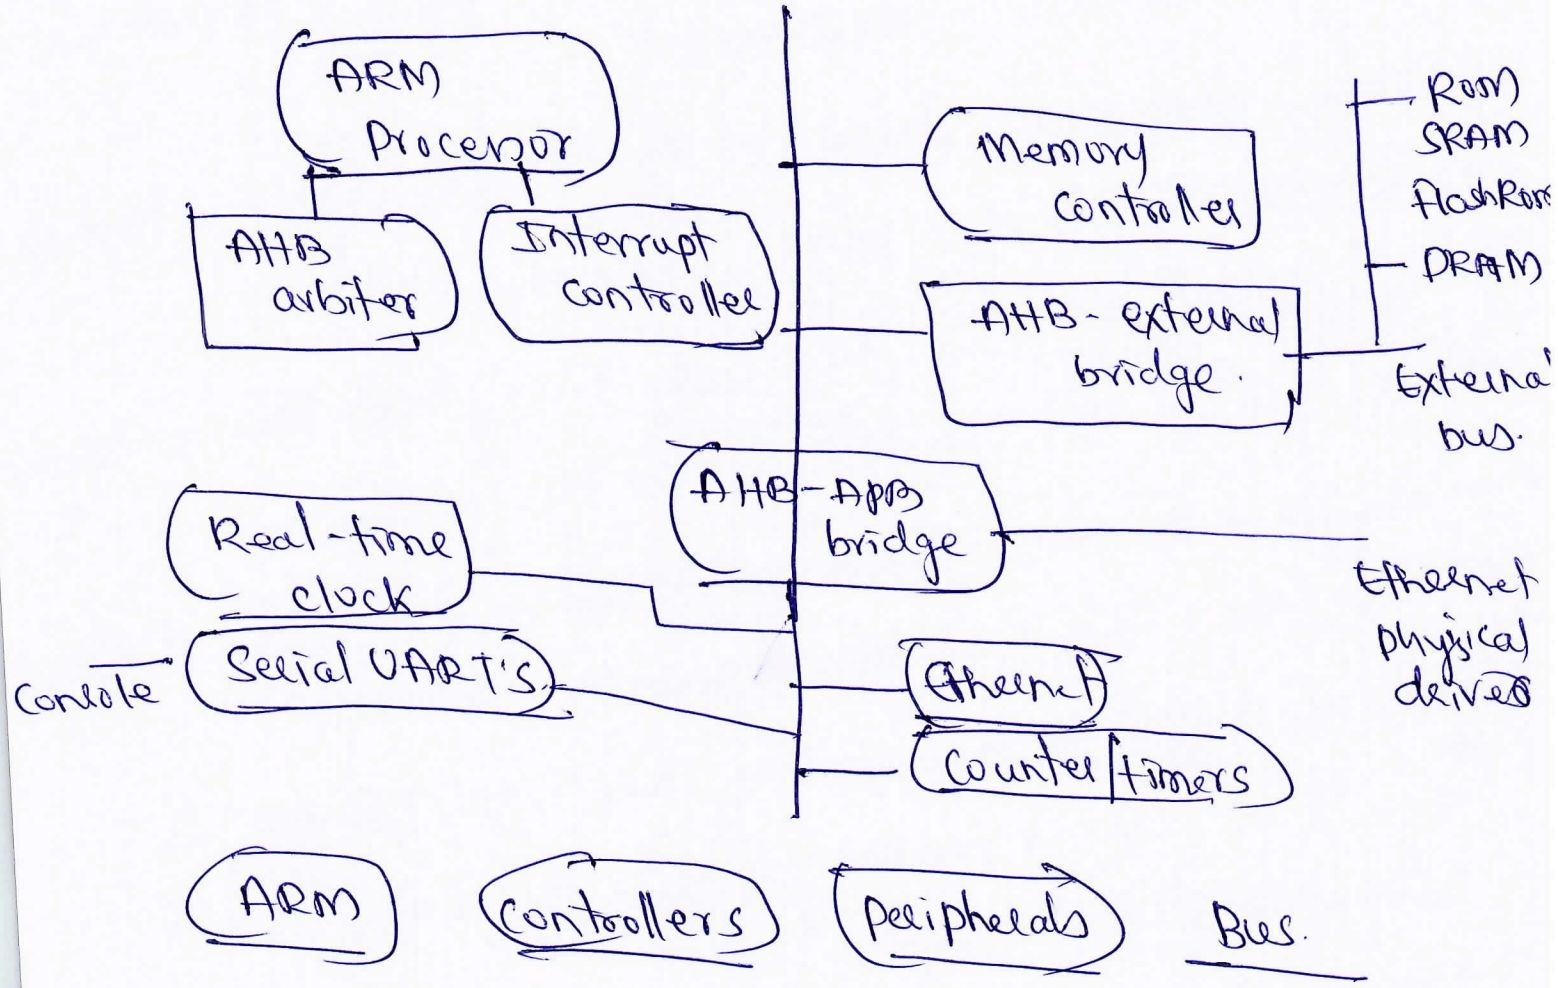 ARM
Processor
AHB
arbiter
Interrupt
controller
Memory
controller
ROM
SRAM
FlashRom
DRAM
AHB - external
bridge.
External
bus.
AHB-APB
bridge
Real-time
clock
Serial UART's
Console
Ethernet
physical
drives
Ethernet
Counter/timers
ARM
Controllers
Peripherals
Bus.